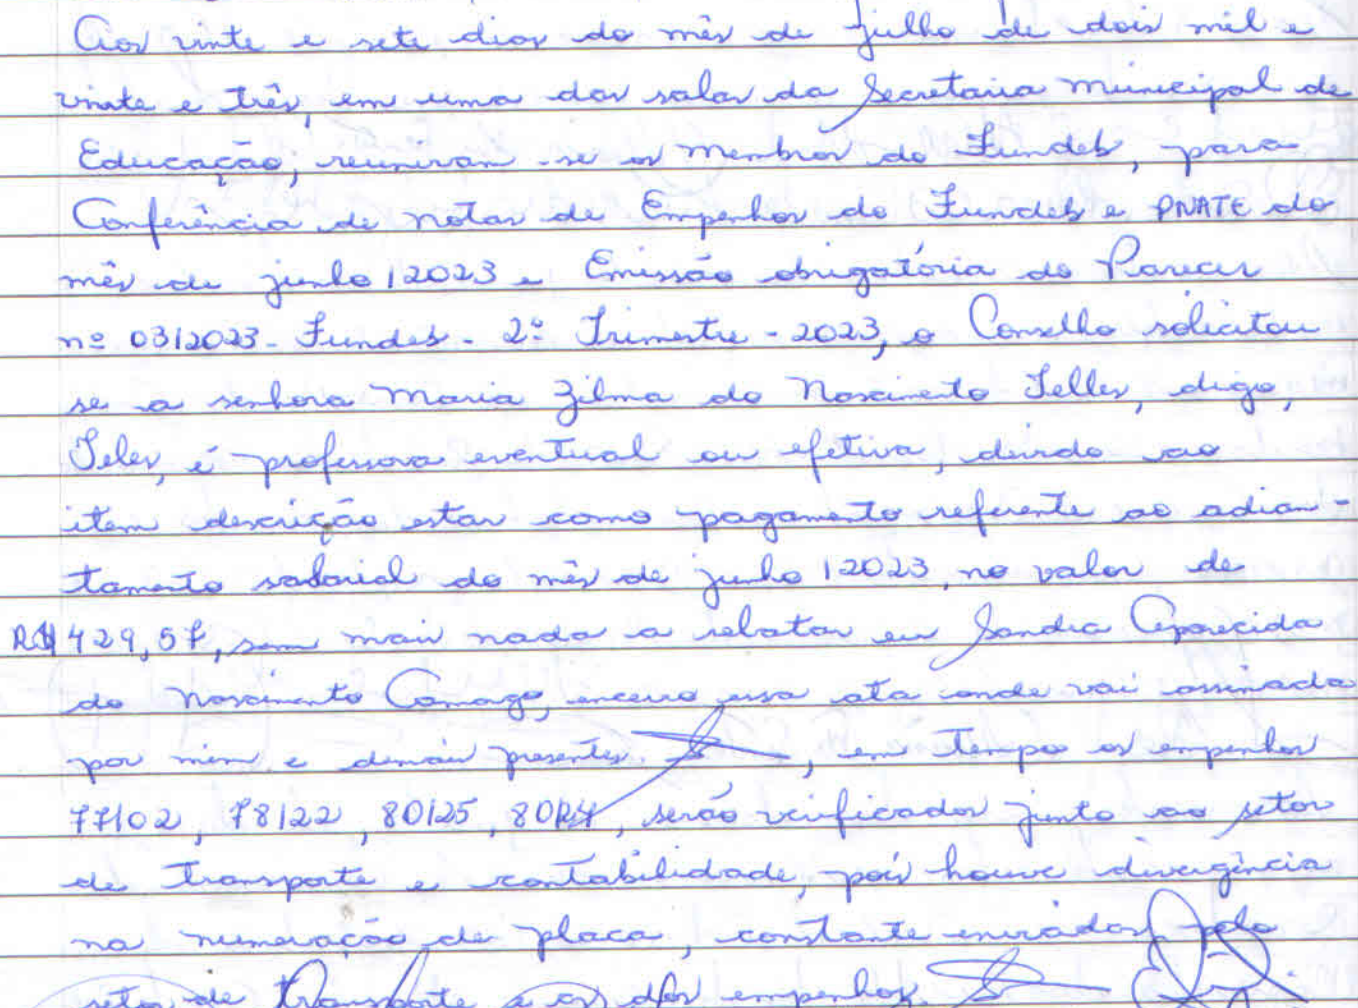 Aos vinte e sete dias do mês de julho de dois mil e
vinte e três, em uma das salas da Secretaria Municipal de
Educação, reuniram-se os membros do Fundeb, para
Conferência de notas de Empenhos do Fundeb e PNATE do
mês de junho/2023 e Emissão obrigatória do Parecer
nº 03/2023 - Fundeb - 2º Trimestre - 2023, o Conselho solicitou
se a senhora Maria Zilma do Nascimento Telles, digo,
Teles, é professora eventual ou efetiva, devido ao
item descrição estar como pagamento referente ao adian-
tamento salarial do mês de junho/2023, no valor de
R$ 429,57, sem mais nada a relatar eu Sandra Aparecida
do Nascimento Camargo, encerro essa ata onde vai assinada
por mim e demais presentes. , em tempo os empenhos
77/02, 78/22, 80/25, 80/24, serão verificados junto ao setor
de transporte e contabilidade, pois houve divergência
na numeração de placa, constante enviados pelo
setor de transporte e os dos empenhos.